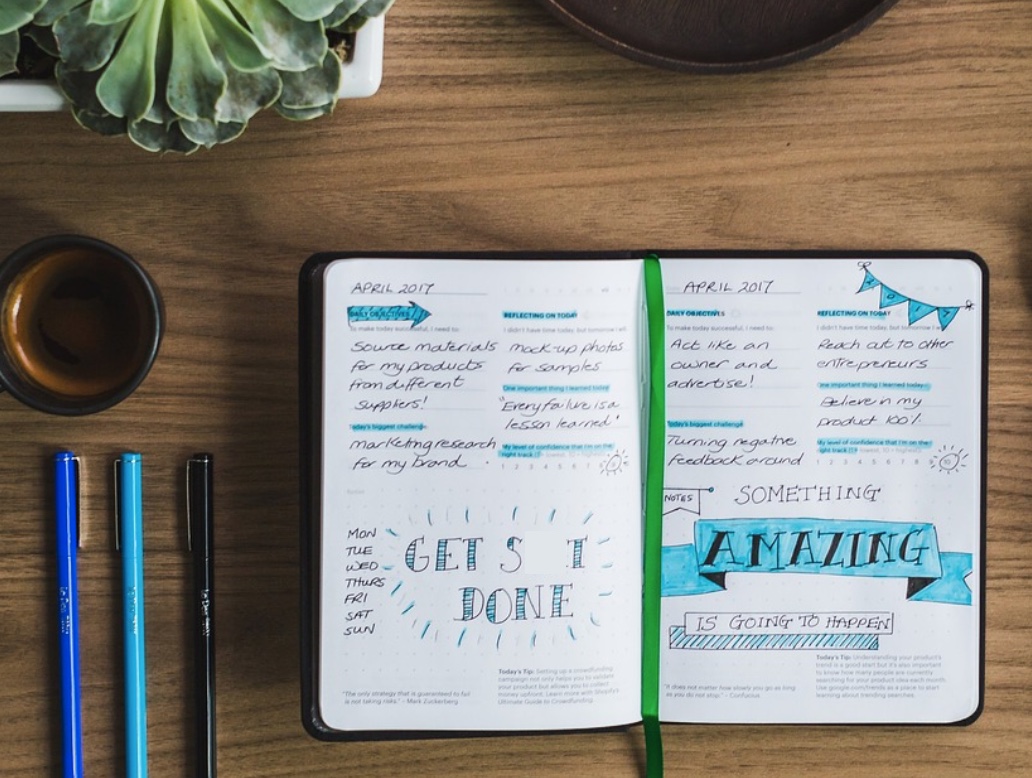 APRIL 2017
DAILY OBJECTIVES
To make today successful, I need to:
Source materials
for my products
from different
suppliers!
Today's biggest challenge
marketing research
for my brand.
REFLECTING ON TODAY
I didn't have time today, but tomorrow I will
mock-up photos
for samples
One important thing I learned today
"Every failure is a
lesson learned"
My level of confidence that I'm on the
right track (1 = lowest, 10 = highest)
1 2 3 4 5 6 7 8 9
MON
TUE
WED
THURS
FRI
SAT
SUN
GET S T
DONE
"The only strategy that is guaranteed to fail
is not taking risks." – Mark Zuckerberg.
Today's Tip: Setting up a crowdfunding
campaign not only helps you to validate
your product but allows you to collect
money upfront. Learn more with Shopify's
Ultimate Guide to Crowdfunding.
APRIL 2017
DAILY OBJECTIVES
To make today successful, I need to:
Act like an
owner and
advertise!
Today's biggest challenge
Turning negative
feedback around
REFLECTING ON TODAY
I didn't have time today, but tomorrow I w
Reach out to other
entrepreneurs
One important thing I learned today
Believe in my
product 100%
My level of confidence that I'm on the
right track (1 = lowest, 10 = highest)
1 2 3 4 5 6 7 8 10
NOTES
SOMETHING
AMAZING
IS GOING TO HAPPEN
"It does not matter how slowly you go as long
as you do not stop." – Confucius
Today's Tip: Understanding your product's
trend is a good start but it's also important
to know how many people are currently
searching for your product idea each month.
Use google.com/trends as a place to start
learning about trending searches.